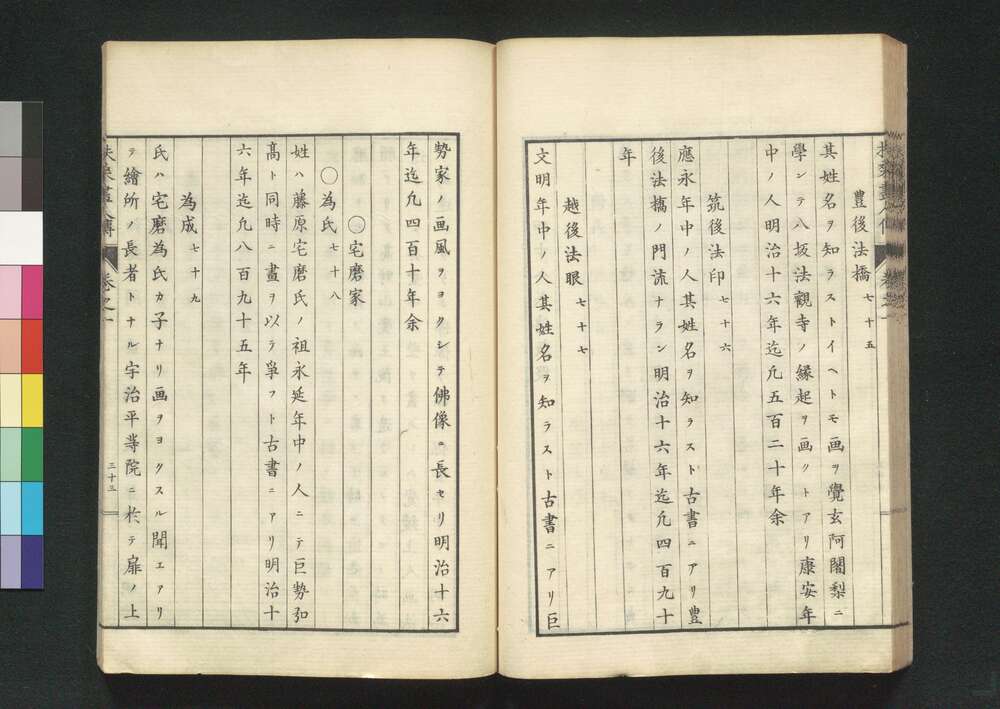 豊後法橋 七十五
其姓名ヲ知ラストイヘトモ画ヲ覺玄阿闍梨ニ
學ンテ八坂法觀寺ノ縁起ヲ画クトアリ康安年
中ノ人明治十六年迄凢五百二十年余
筑後法印 七十六
應永年中ノ人其姓名ヲ知ラスト古書ニアリ豊
後法橋ノ門流ナラン明治十六年迄凢四百九十
年
越後法眼 七十七
文明年中ノ人其姓名ヲ知ラスト古書ニアリ巨
勢家ノ画風ヲヨクシテ佛像ニ長セリ明治十六
年迄凢四百十年余
◯宅磨家
◯為氏 七十八
姓ハ藤原宅磨氏ノ祖永延年中ノ人ニテ巨勢弘
髙ト同時ニ畫ヲ以テ爭フト古書ニアリ明治十
六年迄凢八百九十五年
為成 七十九
氏ハ宅磨為氏カ子ナリ画ヲヨクスル聞エアリ
テ繪所ノ長者トナル宇治平等院ニ於テ扉ノ上
三十三